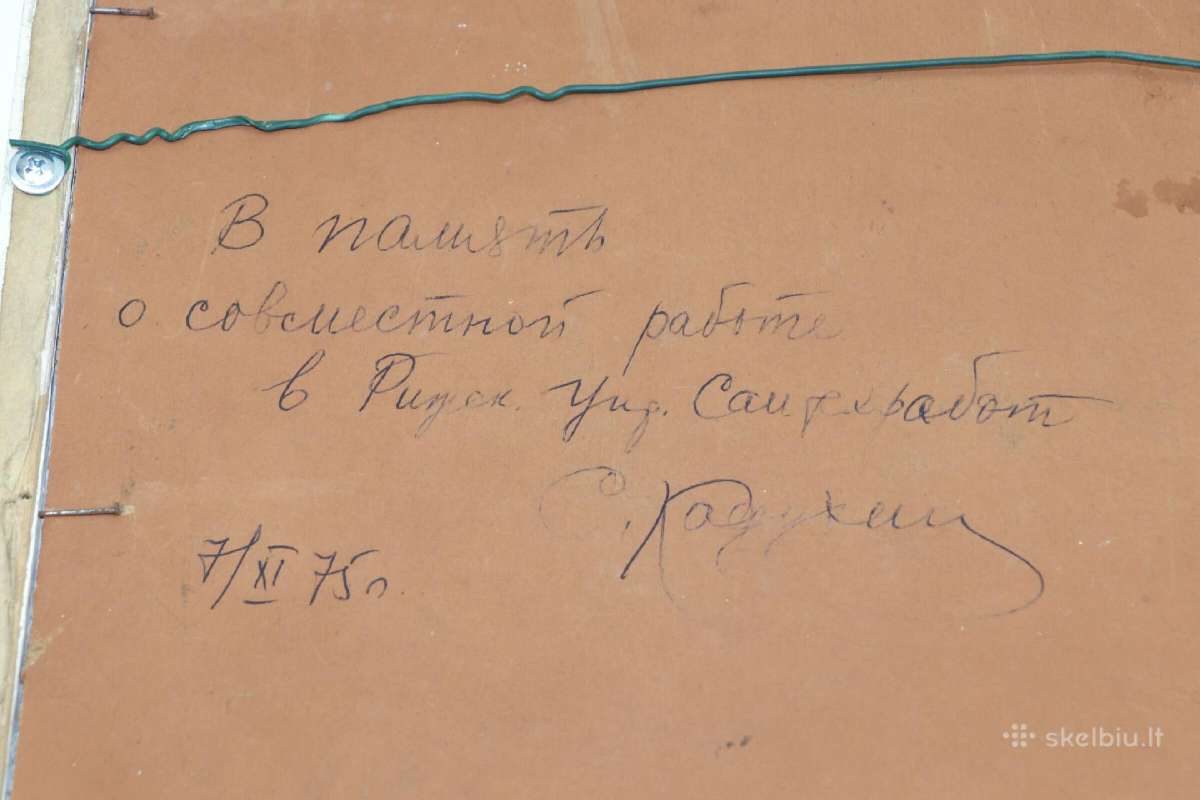 В память
о совместной работе
в Рижск. Упр. Сантехработ
С.
7/XI 75г.
skelbiu.lt